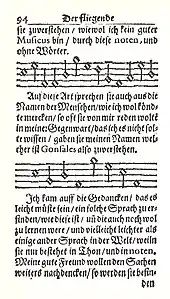 94 Der fliegende
sie zuverstehen / wiewol ich kein guter
Musicus bin / durch diese noten, und
ohne Wörter.
Auf diese Art sprechen sie auch aus die
Namen der Menschen / wie ich wol könd-
te mercken / so oft sie von mir reden wolte
in meiner Gegenwart / das ich es nicht sol-
te wissen / gaben sie meinen Namen wel-
cher ist Gonsales also zuverstehen.
Ich kam auff die Gedancken / das es
leicht müste sein / ein solche Sprach zuer-
finden / wie diese ist / und die auch noch wol
zu lernen were / und vielleicht leichter als
einige ander Sprach in der Welt / weiln
sie nun bestehet in Thon / und in noten.
Meine gute Freund wollen den Sachen
weiters nachdencken / so werden sie befin-
den